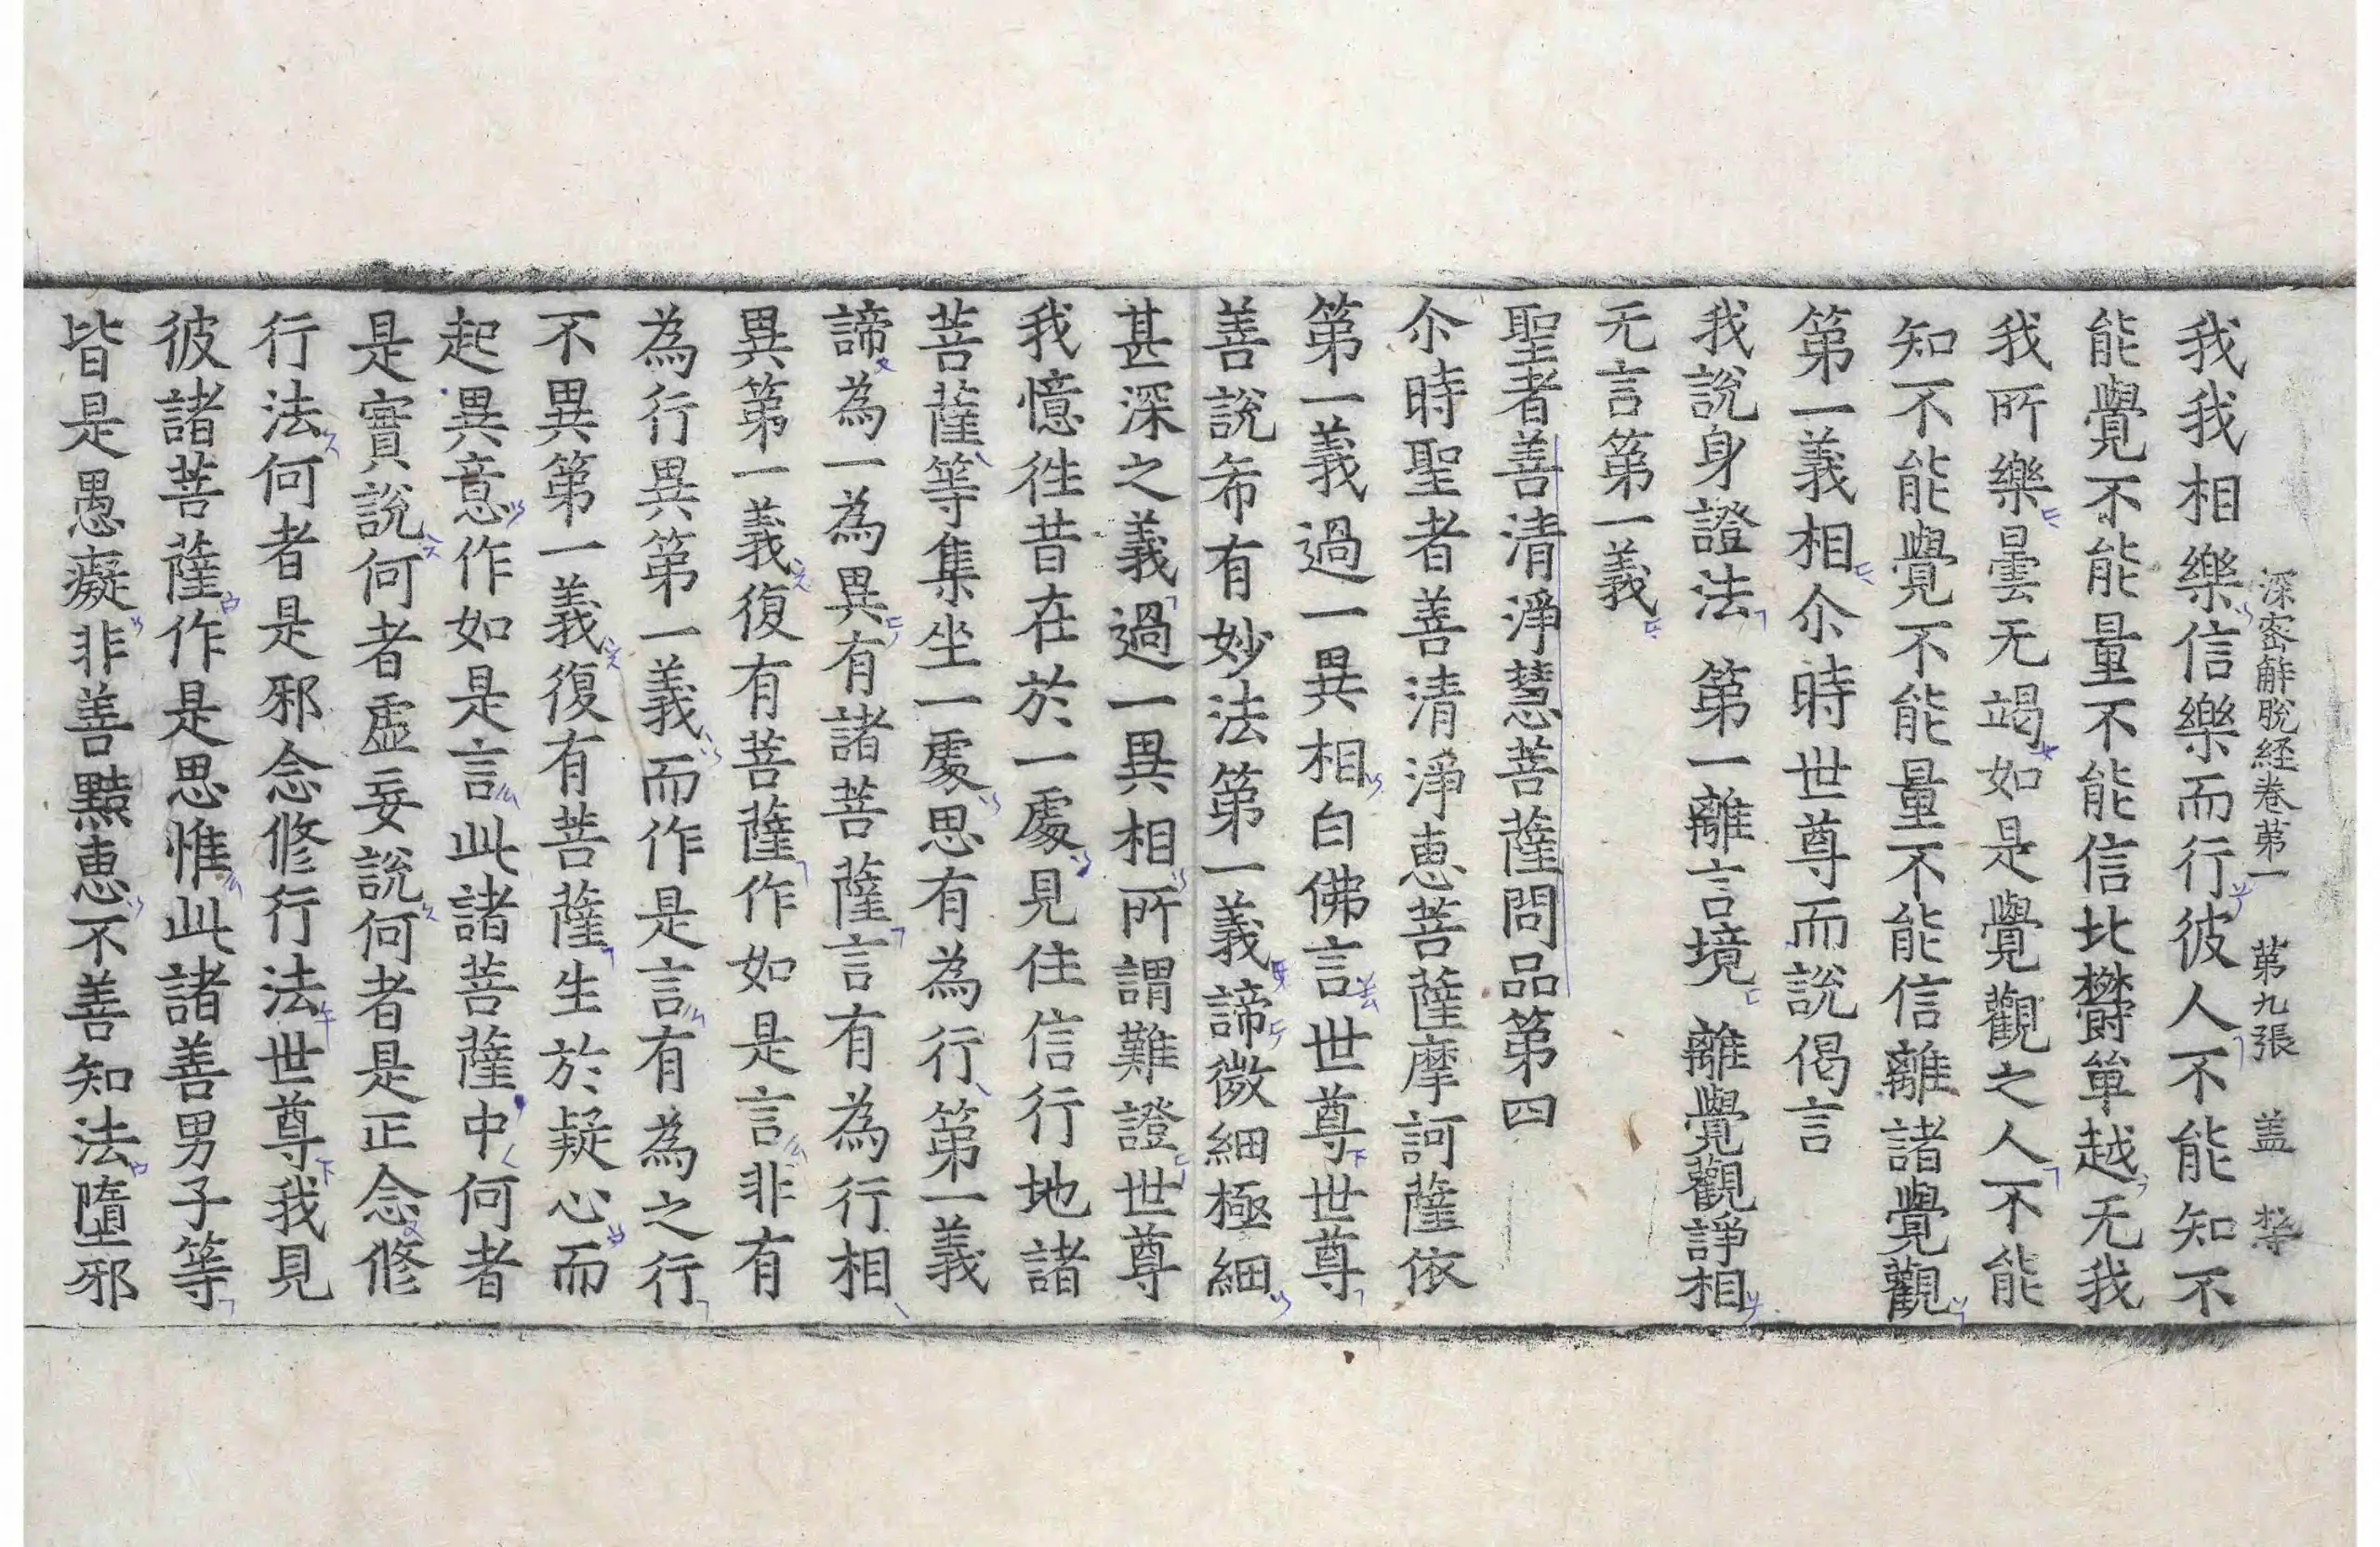 深密解脫経卷第一 第九張 盖
我我相樂信樂而行彼人不能知不
能覺不能量不能信比欝單越无我
我所樂曇无竭如是覺觀之人不能
知不能覺不能量不能信離諸覺觀
第一義相尒時世尊而說偈言
我說身證法 第一離言境 離覺觀諍相
无言第一義
聖者善清淨慧菩薩問品第四
尒時聖者善清淨恵菩薩摩訶薩依
第一義過一異相白佛言世尊世尊
善說希有妙法第一義諦微細極細
甚深之義過一異相所謂難證世尊
我憶徃昔在於一處見住信行地諸
菩薩等集坐一處思有為行第一義
諦為一為異有諸菩薩言有為行相
異第一義復有菩薩作如是言非有
為行異第一義而作是言有為之行
不異第一義復有菩薩生於疑心而
起異意作如是言此諸菩薩中何者
是實說何者虛妄說何者是正念修
行法何者是邪念修行法世尊我見
彼諸菩薩作是思惟此諸善男子等
皆是愚癡非善黠恵不善知法墮邪